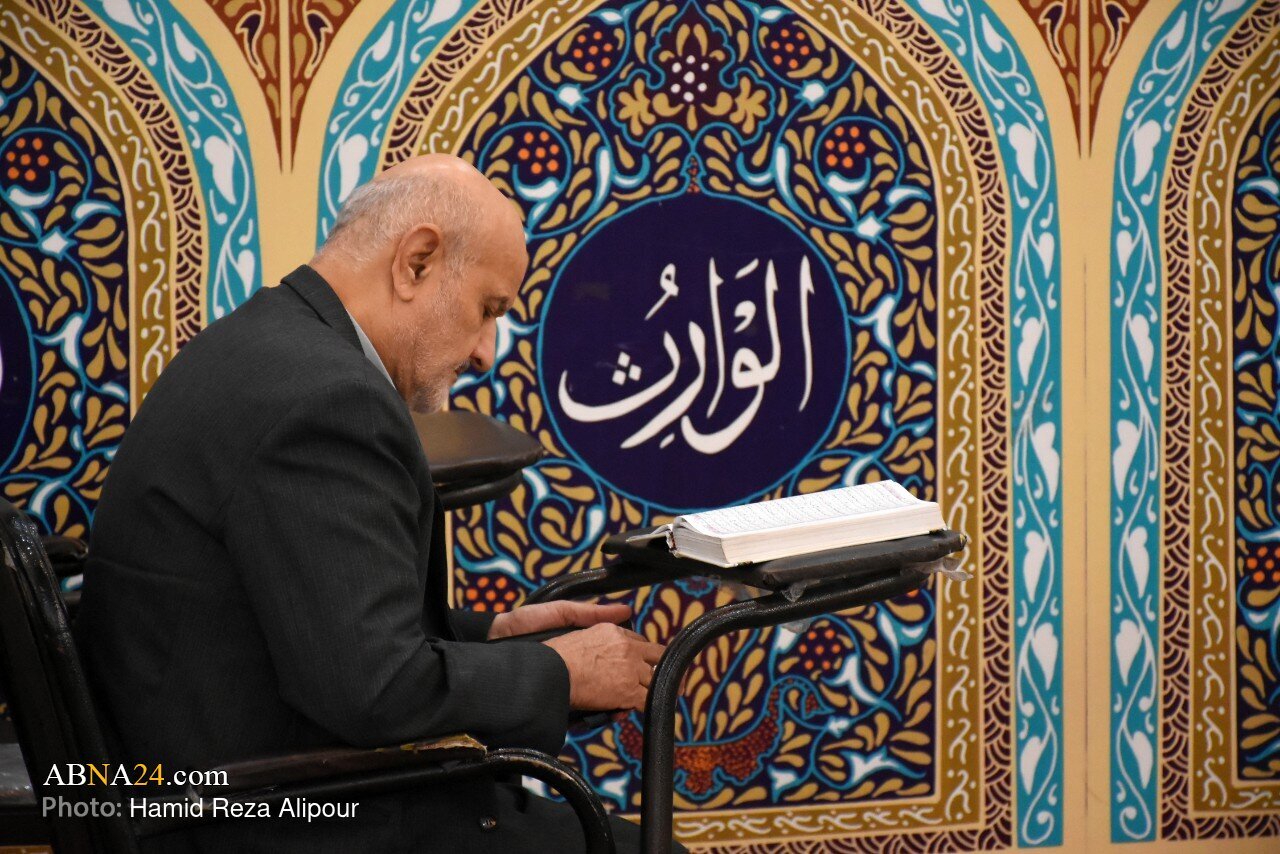 الْوَارِثُ
ABNA24.com
Photo: Hamid Reza Alipour